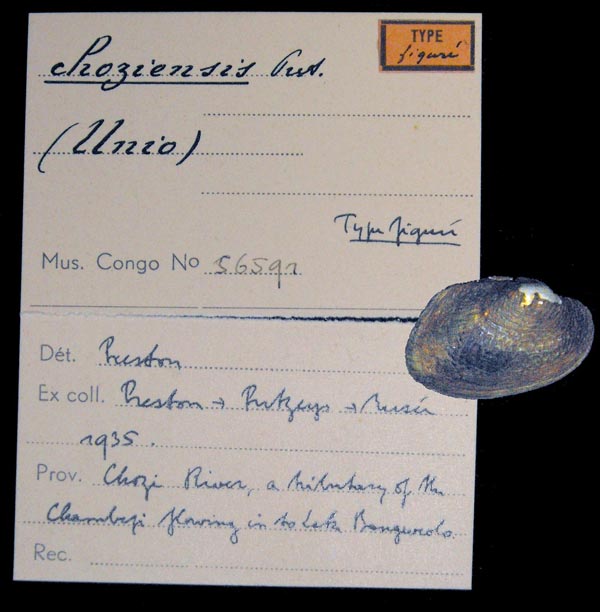 choziensis Prst.
TYPE
figuré
(Unio)
Type figuré
Mus. Congo No 56591
Dét. Preston
Ex coll. Preston → Putzeys → Musée
1935.
Prov. Chozi River, a tributary of the
Chambezi flowing in to Lake Bangweolo
Rec.